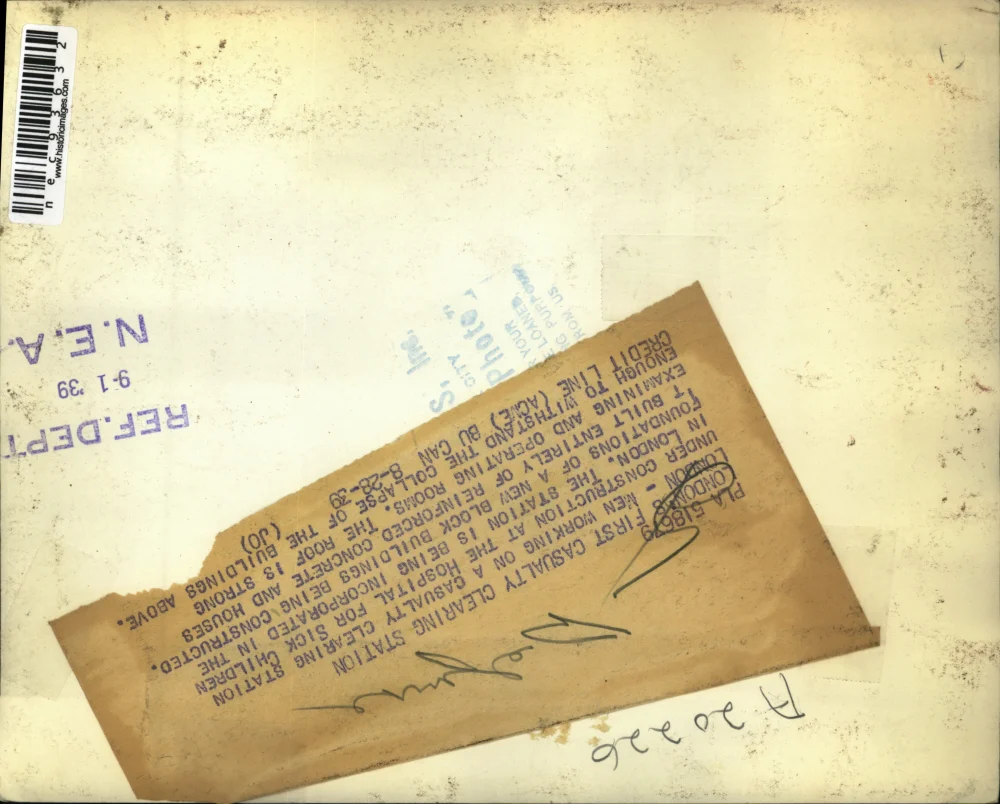 n e c 9 3 6 3 2
www.historicimages.com
REF. DEPT
9-1 '39
N.E.A.
S, Inc.
CITY
Photo"
YOUR
LOANED
FROM US
PLA 518679
LONDON'S FIRST CASUALTY CLEARING STATION
LONDON - MEN WORKING ON A CASUALTY CLEARING STATION
UNDER CONSTRUCTION AT THE HOSPITAL FOR SICK CHILDREN
IN LONDON. THE STATION IS BEING INCORPORATED IN THE
FOUNDATIONS OF A NEW BLOCK BUILDINGS BEING CONSTRUCTED.
T BUILT ENTIRELY OF REINFORCED CONCRETE AND HOUSES
EXAMINING AND OPERATING ROOMS. THE ROOF IS STRONG
ENOUGH TO WITHSTAND THE COLLAPSE OF THE BUILDINGS ABOVE.
CREDIT LINE (ACME) BU CAN 8-28-39 (JO)
A 20226